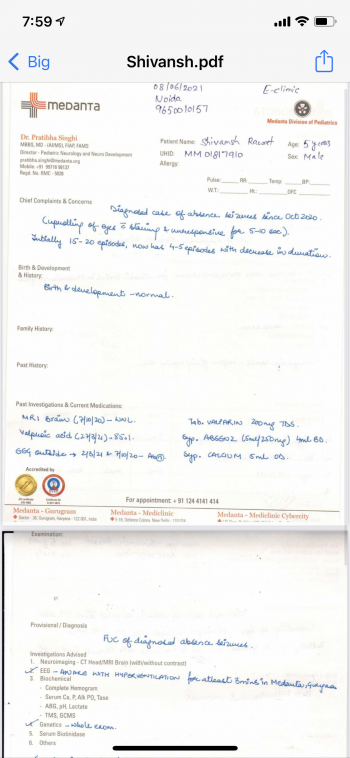 7:59
Big
Shivansh.pdf
08/06/2021
Noida
9650010157
E-clinic
medanta
Medanta Division of Pediatrics
Dr. Pratibha Singhi
MBBS, MD - (AIIMS), FIAP, FAMS
Director - Pediatric Neurology and Neuro Development
pratibha.singhi@medanta.org
Regd. No. DMC - 5028
Patient Name: Shivansh Rawat Age: 5 years
UHID: MM01817910 Sex: Male
Allergy:
Pulse: RR: Temp BP:
W.T.: Ht.: OFC
Chief Complaints & Concerns
Diagnosed case of absence seizures since Oct 2020.
(uprolling of eyes c̄ staring & unresponsive for 5-10 sec).
Initially 15-20 episodes, now has 4-5 episodes with decrease in duration.
Birth & Development
& History:
Birth & development - normal.
Family History:
Past History:
Past Investigations & Current Medications:
MRI Brain (7/10/20) - WNL. Tab. VALPARIN 200mg TDS.
Valproic acid (27/3/21) - 85.1. Syp. (5ml/250mg) 4ml BD.
EEG outside → 2/3/21 & 7/10/20 - Syp. 5ml OD.
Accredited by
For appointment: + 91 124 4141 414
Medanta - Gurugram Medanta - Mediclinic Medanta - Mediclinic Cybercity
Examination:
Provisional / Diagnosis
FUC of diagnosed absence seizures.
Investigations Advised
1. Neuroimaging - CT Head/MRI Brain (with/without contrast)
2. EEG - AWAKE WITH HYPERVENTILATION for atleast 3mins in Medanta, Gurgaon
3. Biochemical
- Complete Hemogram
- Serum Ca, P, Alk PO, Tase
- ABG, pH, Lactate
- TMS, GCMS
4. Genetics - whole exom.
5. Serum Biotinidase
6. Others